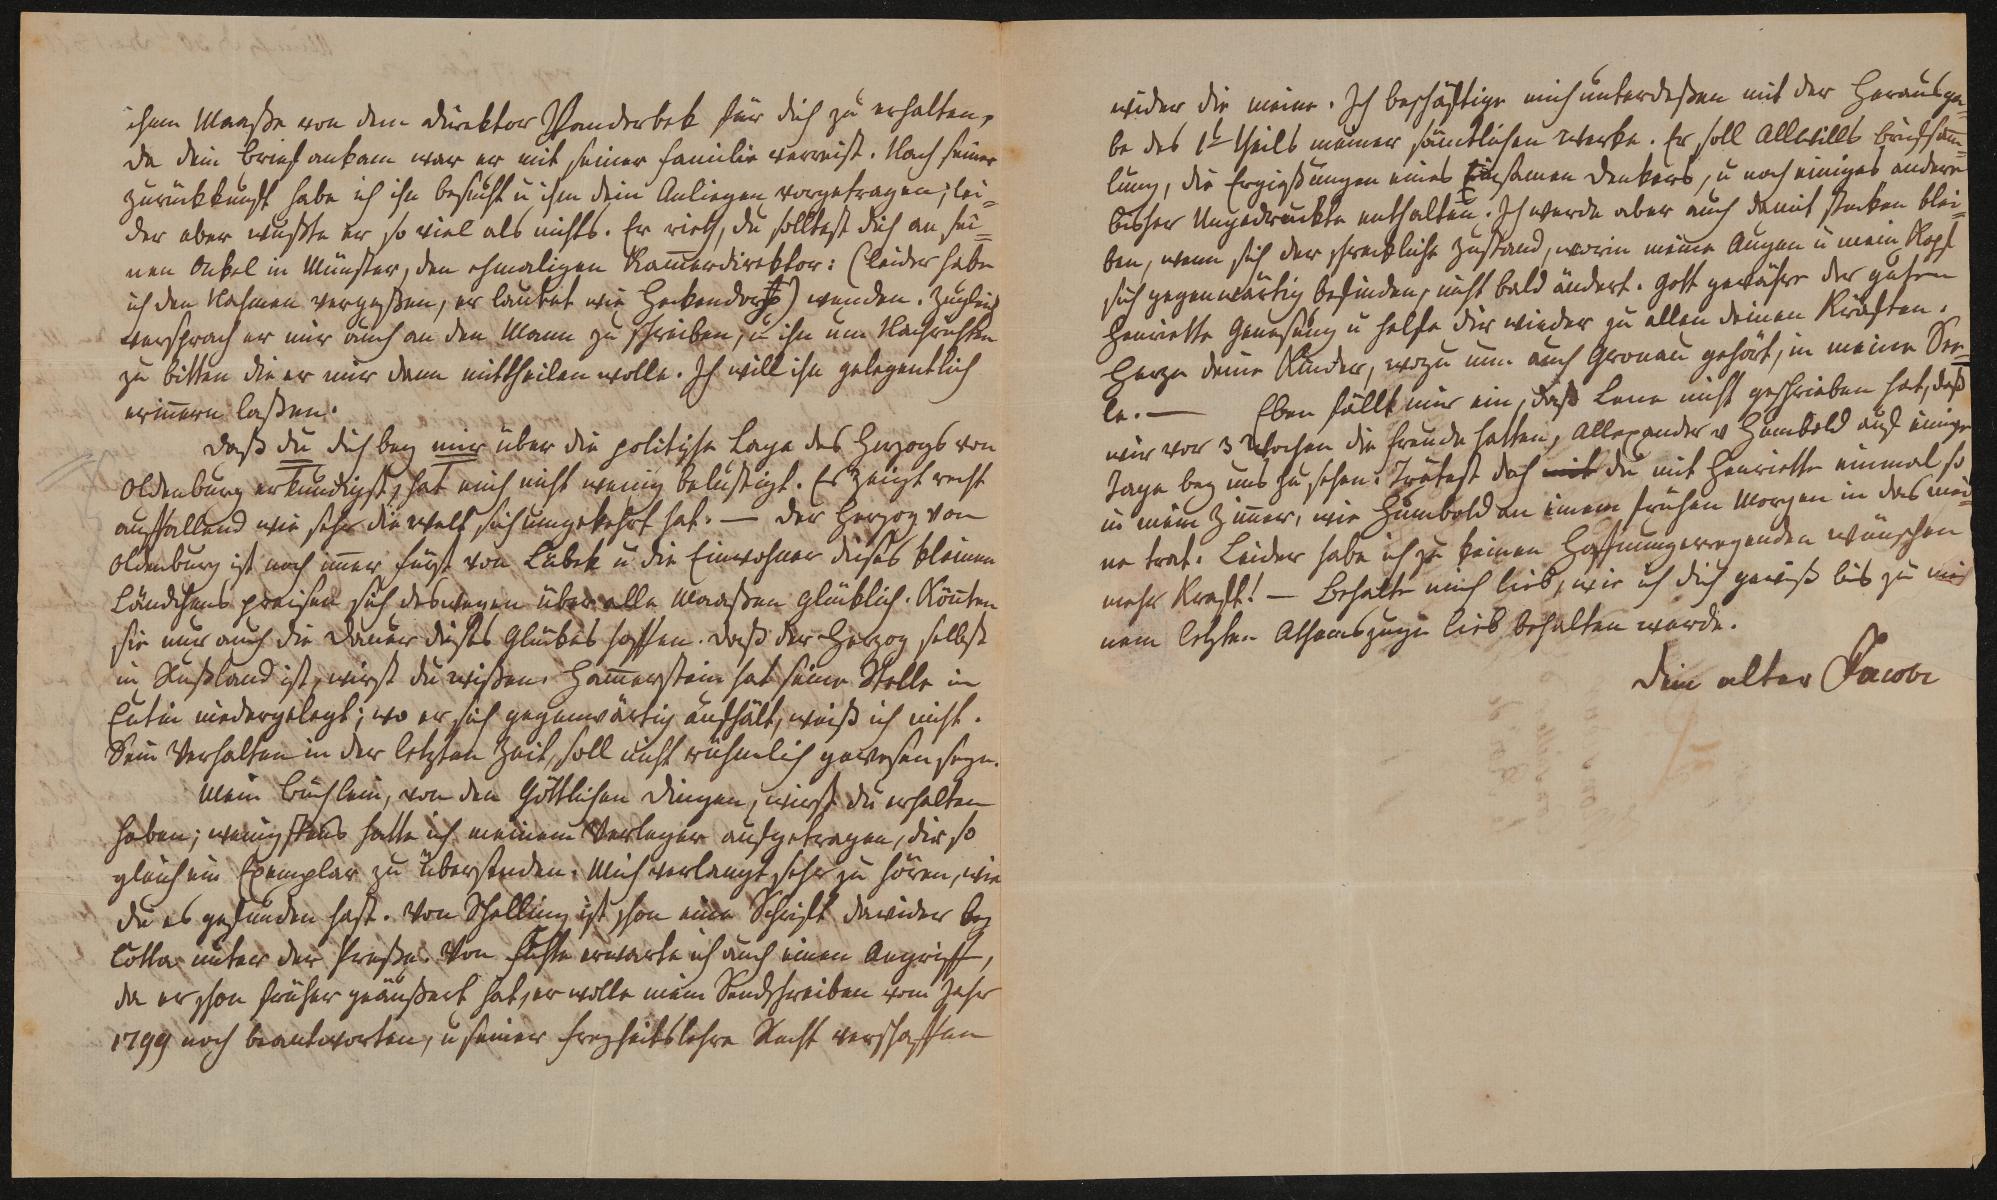 ihem Maaße von dem Direktor Vanderbek für dich zu erhalten,
da dein Brief ankam war er mit seiner Familie verreist. Nach seiner
Zurückkunft habe ich ihn besucht u ihm dein Anliegen vorgetragen; lei=
der aber wußte er so viel als nichts. Er rieth, du solltest dich an sei=
nen Onkel in Münster, den ehmaligen Kam̅erdirektor: (leider habe
ich den Nahmen vergeßen, er lautet wie Heckendorf) wenden. Zugleich
versprach er mir auch an den Mann zu schreiben, u ihn um Nachrichten
zu bitten die er mir dann mittheilen wolle. Ich will ihn gelegentlich
erin̅ern laßen.
Daß du dich bey mir über die politische Lage des Herzogs von
Oldenburg erkundigst, hat mich nicht wenig belustigt. Es zeigt recht
auffallend wie sehr die Welt sich umgekehrt hat. — Der Herzog von
Oldenburg ist noch im̅er Fürst von Lübek u die Einwohner dieses kleinen
Ländchens preisen sich deswegen über alle Maaßen glüklich. Kön̅ten
sie nur auch die Dauer dieses Glükes hoffen. Daß der Herzog selbst
in Rußland ist, wirst du wißen. Ham̅erstein hat seine Stelle in
Eutin niedergelegt; wo er sich gegenwärtig aufhält, weiß ich nicht.
Sein Verhalten in der letzten Zeit, soll nicht rühmlich gewesen seyn.
Mein Büchlein, von den Göttlichen Dingen, wirst du erhalten
haben; wenigstens hatte ich meinem Verleger aufgetragen, dir so
gleich ein Exemplar zu übersenden. Mich verlangt sehr zu hören, wie
du es gefunden hast. Von Schelling ist schon eine Schrift dawider bey
Cotta unter der Preße. Von Fichte erwarte ich auch einen Angriff,
da er schon früher geäußert hat, er wolle mein Sendschreiben vom Jahr
1799 noch beantworten, u seiner Freyheitslehre Recht verschaffen
wider die meine. Ich beschäftige mich unterdeßen mit der Herausga=
be des 1t Theils meiner sämtlichen Werke. Er soll Allwills Briefsam̅=
lung, die Ergießungen eines Einsamen Denkers, u noch einiges andere
bisher Ungedruckte enthalten. Ich werde aber auch damit stecken blei=
ben, wenn sich der schreckliche Zustand, worin meine Augen u mein Kopf
sich gegenwärtig befinden, nicht bald ändert. Gott gewähre der guten
Henriette Genesung u helfe dir wieder zu allen deinen Kräften.
Herze deine Kinder, wozu nun auch Gronau gehört, in meine See=
le. — Eben fällt mir ein, daß Lene nicht geschrieben hat, daß
wir vor 3 Wochen die Freude hatten, Allexander v Humbold auf einige
Tage bey uns zu sehen. Trätest doch du mit Henriette einmal so
in mein Zim̅er, wie Humbold an einem frühen Morgen in das mei=
ne trat. Leider habe ich zu keinen Hoffnungerregenden Wünschen
mehr Kraft! — Behalte mich lieb, wie ich dich gewiß bis zu mei
nem letzten Athemszuge lieb behalten werde.
Dein alter Jacobi